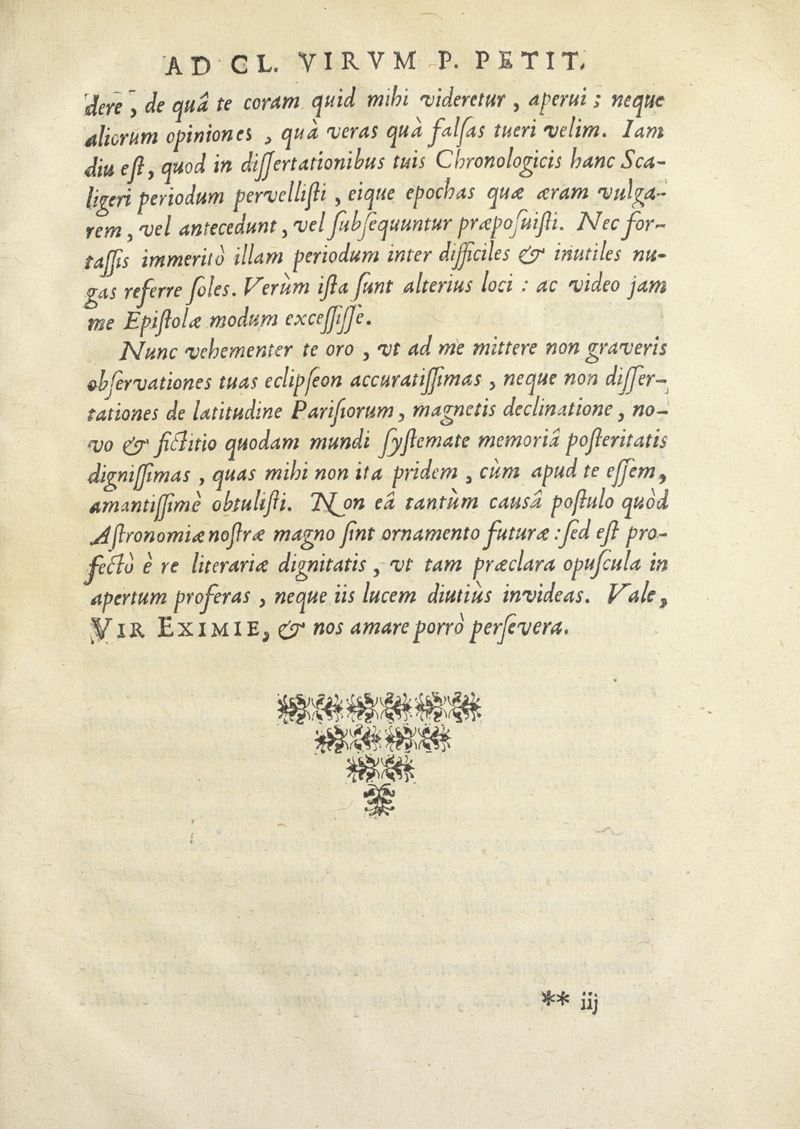 AD CL. VIRVM P. PETIT.
dere, de quâ te coram quid mihi videretur, aperui; neque
aliorum opiniones, quà veras quà falſas tueri velim. Iam
diu eſt, quod in diſſertationibus tuis Chronologicis hanc Sca-
ligeri periodum pervelliſti, eique epochas quæ æram vulga-
rem, vel antecedunt, vel ſubſequuntur præpoſuiſti. Nec for-
taſſis immeritò illam periodum inter difficiles & inutiles nu-
gas referre ſoles. Verùm iſta ſunt alterius loci: ac video jam
me Epiſtolæ modum exceſſiſſe.
Nunc vehementer te oro, vt ad me mittere non graveris
obſervationes tuas eclipſeon accuratiſſimas, neque non diſſer-
tationes de latitudine Pariſiorum, magnetis declinatione, no-
vo & fictitio quodam mundi ſyſtemate memoriâ poſteritatis
digniſſimas, quas mihi non ita pridem, cùm apud te eſſem,
amantiſſimè obtuliſti. Non eâ tantùm causâ poſtulo quòd
Aſtronomiæ noſtræ magno ſint ornamento futuræ: ſed eſt pro-
fectò è re literariæ dignitatis, vt tam præclara opuſcula in
apertum proferas, neque iis lucem diutiùs invideas. Vale,
VIR EXIMIE, & nos amare porrò perſevera.
** iij